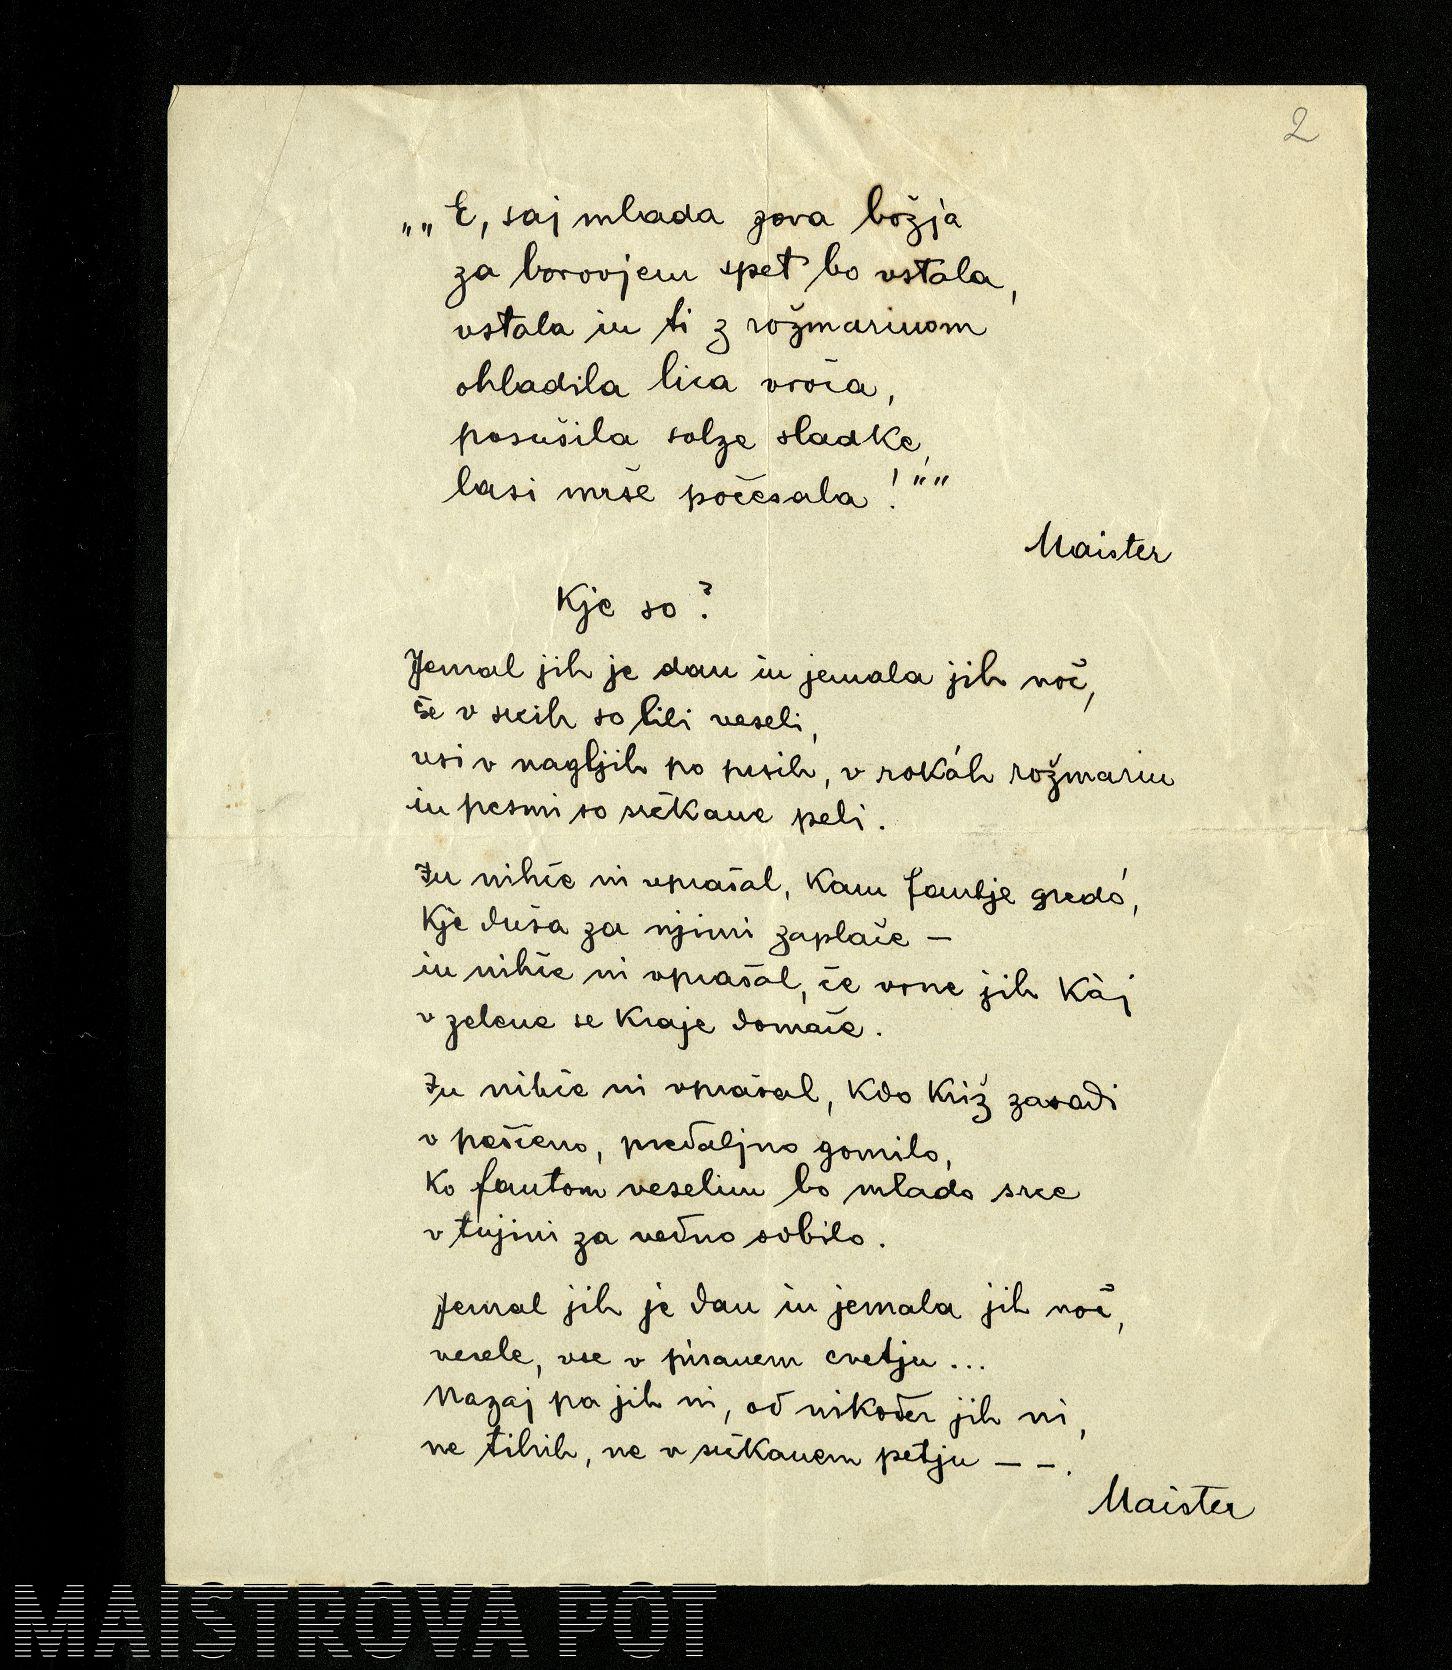 2
„„E, saj mlada zora božja
za borovjem spet bo vstala,
vstala in ti z rožmarinom
ohladila lica vroča,
posušila solze sladke,
lasi mrše počesala!""
Maister
Kje so?
Jemal jih je dan in jemala jih noč,
še v srcih so bili veseli,
vsi v nagljih po prsih, v rokáh rožmarin
in pesmi so srčkane peli.
In nihče ni vprašal, kam fantje gredó,
kje duša za njimi zaplače –
in nihče ni vprašal, če vrne jih kàj
v zelene se kraje domače.
In nihče ni vprašal, kdo križ zasadi
v peščeno, predaljno gomilo,
ko fantom veselim bo mlado srce
v tujini za vedno odbilo.
Jemal jih je dan in jemala jih noč,
vesele, vse v pisanem cvetju...
Nazaj pa jih ni, od nikoder jih ni,
ne tihih, ne v srčkanem petju – –.
Maister
MAISTROVA POT